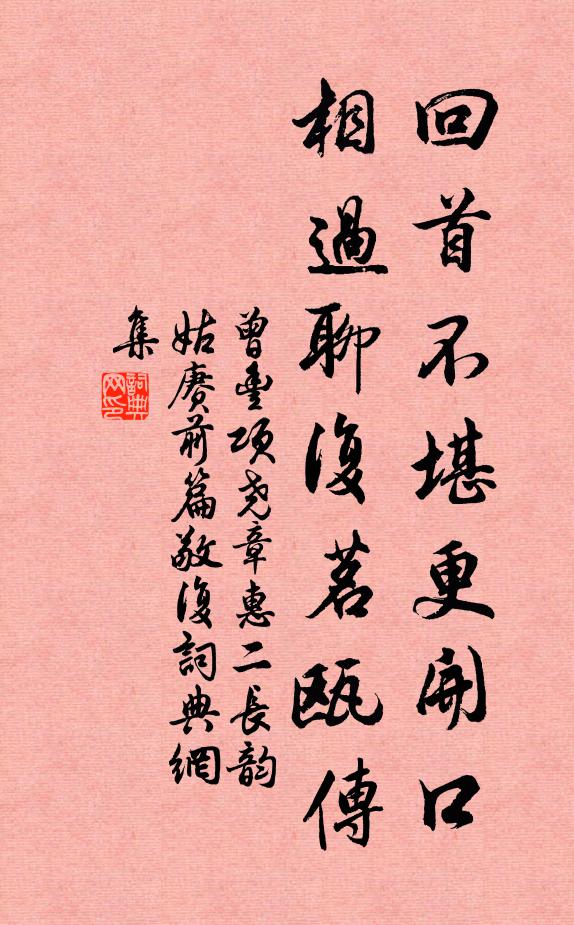 回首不堪更開口
相過聊復茗甌傳
曾豐項尧章惠二長韵
姑賡前篇敬復詞典網
集
詞典
网印